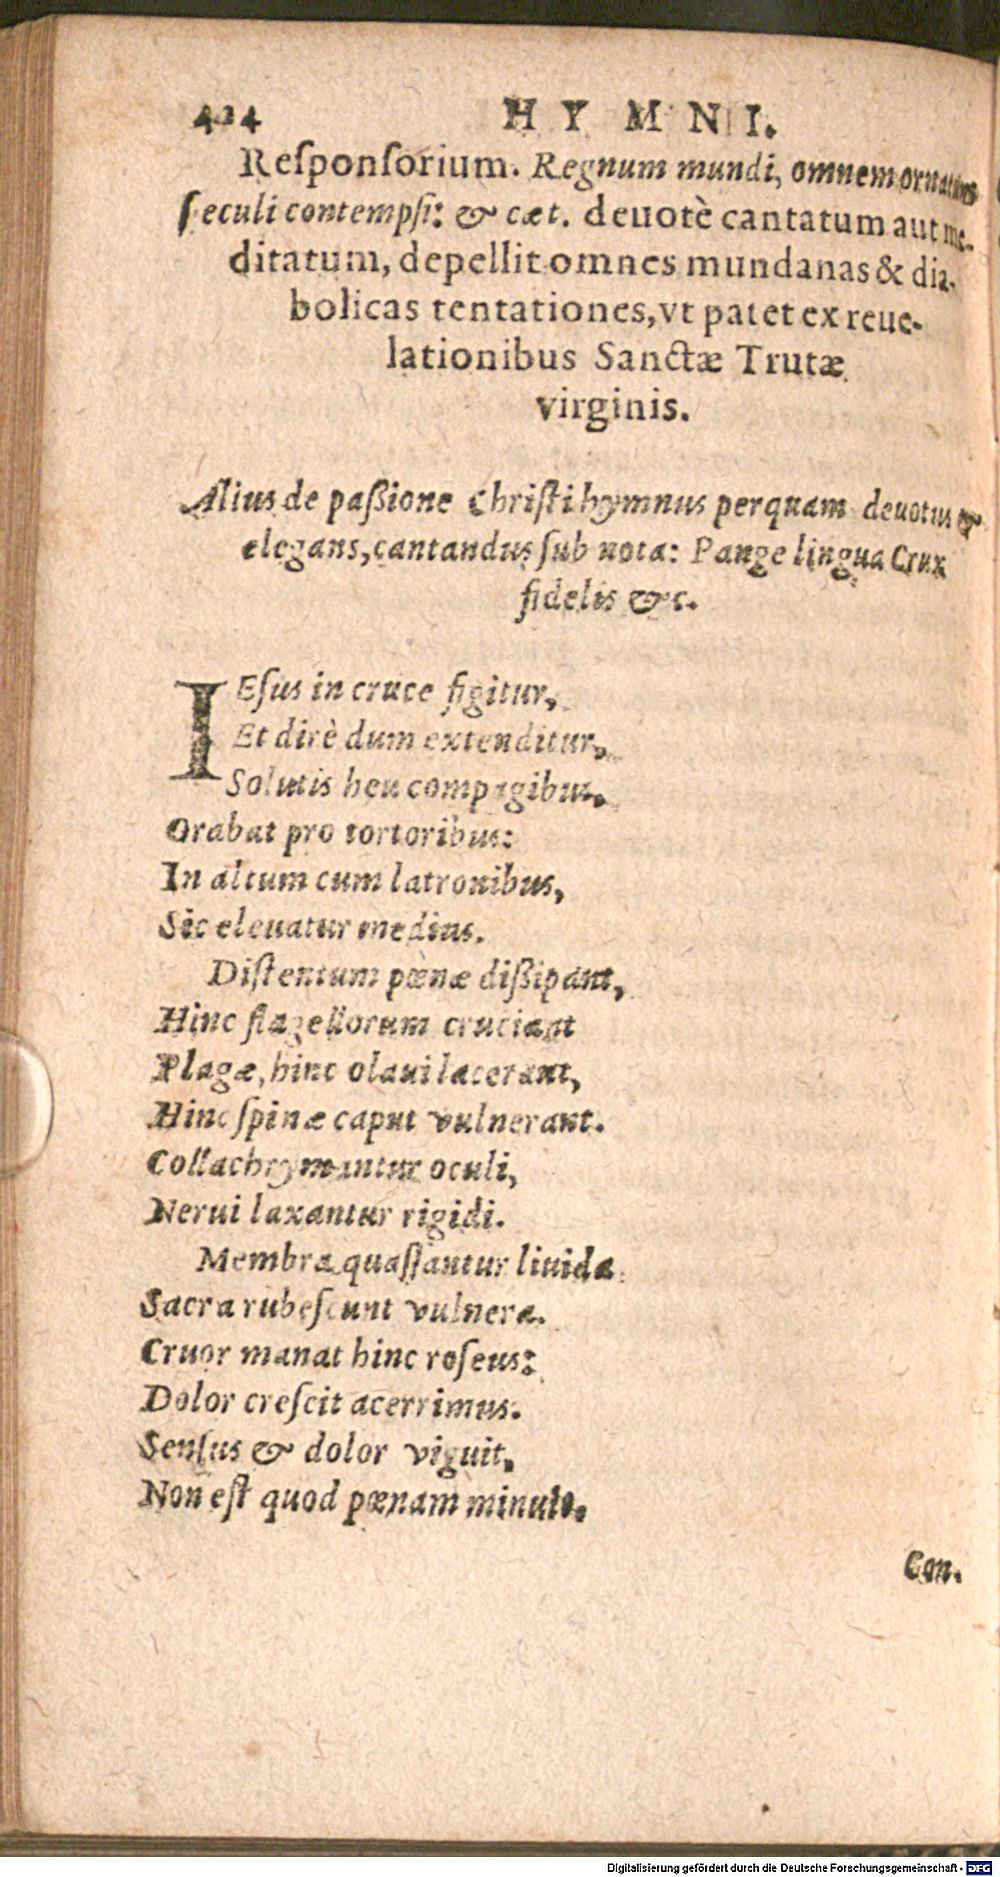 424 HYMNI.
Reſponſorium. Regnum mundi, omnem ornatum
ſeculi contempſi: & cæt. deuotè cantatum aut me-
ditatum, depellit omnes mundanas & dia-
bolicas tentationes, vt patet ex reue-
lationibus Sanctæ Trutæ
virginis.
Alius de paßione Chriſti hymnus perquam deuotus &
elegans, cantandus ſub nota: Pange lingua Crux
fidelis &c.
IEſus in cruce figitur,
Et dirè dum extenditur,
Solutis heu compagibus,
Orabat pro tortoribus:
In altum cum latronibus,
Sic eleuatur medius.
Diſtentum pœnæ dißipant,
Hinc flagellorum cruciant
Plagæ, hinc claui lacerant,
Hinc ſpinæ caput vulnerant.
Collachrymantur oculi,
Nerui laxantur rigidi.
Membra quaſſantur liuida
Sacra rubeſcunt vulnera.
Cruor manat hinc roſeus:
Dolor creſcit acerrimus.
Senſus & dolor viguit,
Non eſt quod pœnam minuit.
Con.
Digitalisierung gefördert durch die Deutsche Forschungsgemeinschaft - DFG